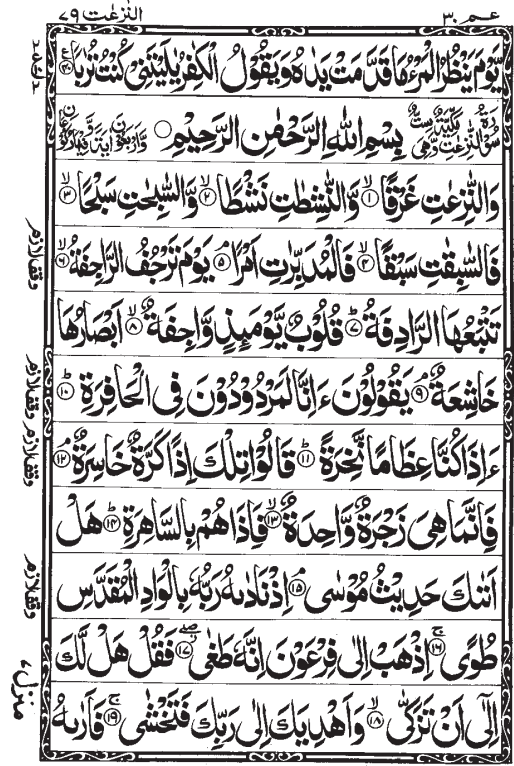 عم ٣٠
النزعت ٧٩
يَّوْمَ يَنْظُرُ الْمَرْءُ مَا قَدَّمَتْ يَدٰهُ وَيَقُوْلُ الْكٰفِرُ يٰلَيْتَنِيْ كُنْتُ تُرٰبًا ﴿٤٠﴾
بِسْمِ اللّٰهِ الرَّحْمٰنِ الرَّحِيْمِ
وَالنّٰزِعٰتِ غَرْقًا ﴿١﴾ وَّالنّٰشِطٰتِ نَشْطًا ﴿٢﴾ وَّالسّٰبِحٰتِ سَبْحًا ﴿٣﴾
فَالسّٰبِقٰتِ سَبْقًا ﴿٤﴾ فَالْمُدَبِّرٰتِ اَمْرًا ﴿٥﴾ يَوْمَ تَرْجُفُ الرَّاجِفَةُ ﴿٦﴾
تَتْبَعُهَا الرَّادِفَةُ ﴿٧﴾ قُلُوْبٌ يَّوْمَئِذٍ وَّاجِفَةٌ ﴿٨﴾ اَبْصَارُهَا
خَاشِعَةٌ ﴿٩﴾ يَقُوْلُوْنَ ءَاِنَّا لَمَرْدُوْدُوْنَ فِي الْحَافِرَةِ ﴿١٠﴾
ءَاِذَا كُنَّا عِظَامًا نَّخِرَةً ﴿١١﴾ قَالُوْا تِلْكَ اِذًا كَرَّةٌ خَاسِرَةٌ ﴿١٢﴾
فَاِنَّمَا هِيَ زَجْرَةٌ وَّاحِدَةٌ ﴿١٣﴾ فَاِذَا هُمْ بِالسَّاهِرَةِ ﴿١٤﴾ هَلْ
اَتٰىكَ حَدِيْثُ مُوْسٰى ﴿١٥﴾ اِذْ نَادٰىهُ رَبُّهٗ بِالْوَادِ الْمُقَدَّسِ
طُوًى ﴿١٦﴾ اِذْهَبْ اِلٰى فِرْعَوْنَ اِنَّهٗ طَغٰى ﴿١٧﴾ فَقُلْ هَلْ لَّكَ
اِلٰٓى اَنْ تَزَكّٰى ﴿١٨﴾ وَاَهْدِيَكَ اِلٰى رَبِّكَ فَتَخْشٰى ﴿١٩﴾ فَاَرٰىهُ
وقف لازم
وقف لازم
وقف لازم
وقف لازم
منزل ٧